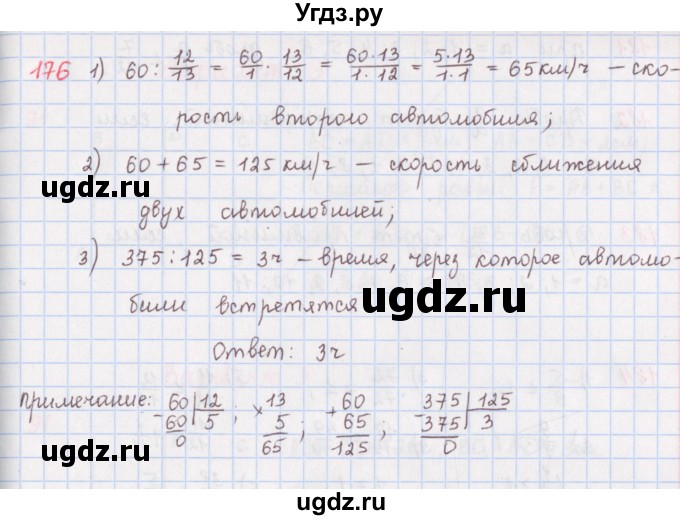 Угдз.ру
176 1) 60 : 12/13 = 60/1 · 13/12 = 60·13/1·12 = 5·13/1·1 = 65 км/ч – ско-
рость второго автомобиля;
ugdz.ru
ugdz.ru
2) 60 + 65 = 125 км/ч – скорость сближения
двух автомобилей;
3) 375 : 125 = 3ч – время, через которое автомо-
били встретятся
ugdz.ru
Ответ: 3ч
Примечание: 60 | 12 ; × 13 ; + 60 ; 375 | 125
- 60 5 5 65 - 375 3
0 65 125 0
ugdz.ru
ugdz.ru
ugdz.ru